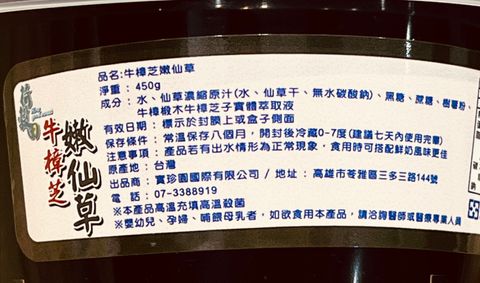 品名:牛樟芝嫩仙草
淨重：450g
成分：水、仙草濃縮原汁(水、仙草干、無水碳酸鈉)、黑糖、蔗糖、樹薯粉、
牛樟椴木牛樟芝子實體萃取液
有效日期：標示於封膜上或盒子側面
保存條件：常溫保存八個月，開封後冷藏0-7度(建議七天內使用完畢)
注意事項：產品若有出水情形為正常現象，食用時可搭配鮮奶風味更佳
原產地：台灣
出品商：實珍園國際有限公司 / 地址：高雄市苓雅區三多三路144號
電話：07-3388919
※本產品高溫充填高溫殺菌
※嬰幼兒、孕婦、哺餵母乳者，如欲食用本產品，請洽詢醫師或醫療專業人員
牛樟芝
嫩仙草